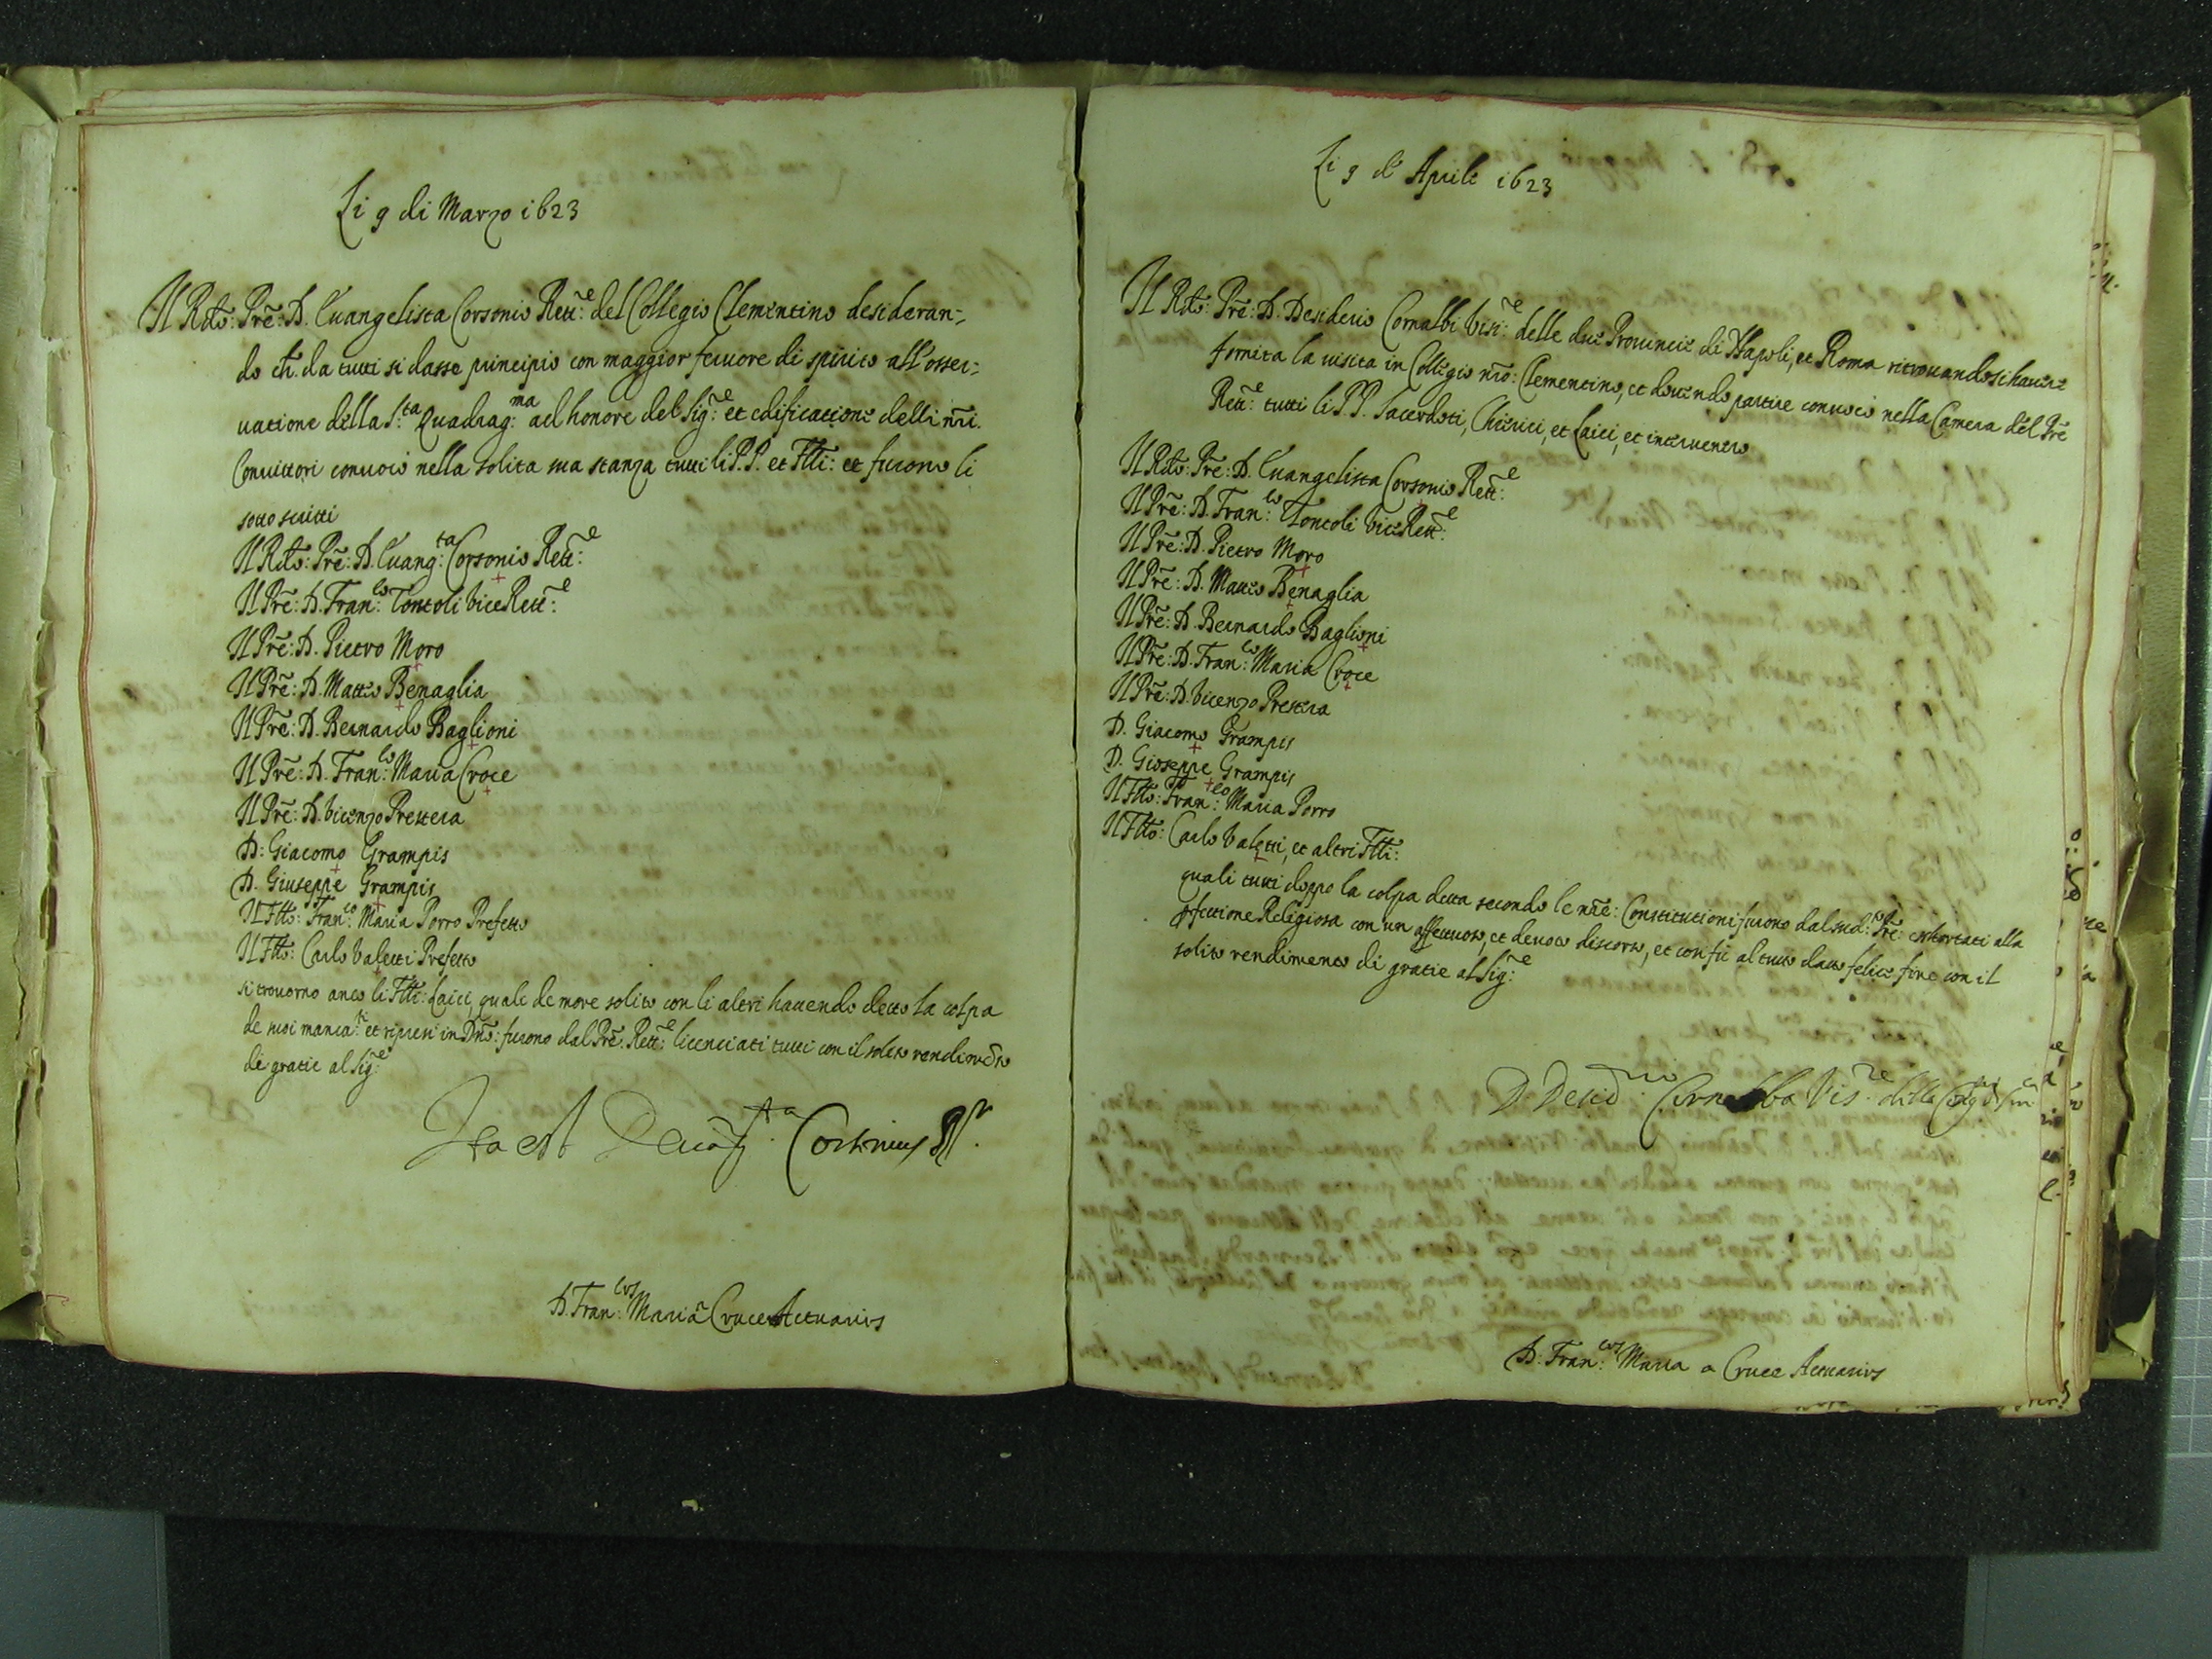 Li 9 di Marzo 1623
Il Rdo: Pre: D. Evangelista Corsonio Rett:e del Collegio Clementino desideran-
do ch. da tutti si dasse principio con maggior fervore di spirito all'osser-
vatione della S.ta Quadrag:ma ad honore del Sig:re et edificatione delli nri.
Convittori convocò nella solita sua stanza tutti li P.P. et Flli: et furono li
sotto scritti
Il Rdo: Pre: D. Evang:ta Corsonio Rett:e
Il Pre: D. Fran:co Tontoli ViceRett:e
Il Pre: D. Pietro Moro
Il Pre: D. Matteo Benaglia
Il Pre: D. Bernardo Baglioni
Il Pre: D. Fran:co Maria Croce
Il Pre: D. Vicenzo Prestera
D: Giacomo Grampis
D. Giuseppe Grampis
Il Fllo: Fran:co Maria Porro Prefetto
Il Fllo: Carlo Valetti Prefetto
si trovorno anco li Flli: Laici, quale de more solito con li altri havendo detto la colpa
de suoi manca:ti et ripresi in Dno: furono dal Pre. Rett:e licenciati tutti con il solito rendimēto
di gratie al Sig:re
Ita est D Evāg:ta Corsonius Rr.
D. Fran:cus Maria Cruce Actuarius
Li 9 di Aprile 1623
Il Rdo: Pre: D. Desiderio Cornalbi Visi:re delle due Provincie di Napoli, et Roma ritrovandosi haver
fornita la visita in Collegio nro: Clementino, et dovendo partire convocò nella Camera del Pre
Rett:e tutti li P.P. Sacerdoti, Chierici, et Laici, et intervenero
Il Rdo: Pre: D. Evangelista Corsonio Rett:e
Il Pre: D. Fran:co Tontoli ViceRett:e
Il Pre: D. Pietro Moro
Il Pre: D. Matteo Benaglia
Il Pre: D. Bernardo Baglioni
Il Pre: D. Fran:co Maria Croce
Il Pre: D. Vicenzo Prestera
D. Giacomo Grampis
D. Gioseppe Grampis
Il Fllo: Fran:co Maria Porro
Il Fllo: Carlo Valetti, et altri Flli:
quali tutti doppo la colpa detta secondo le nre: Constitutioni furono dal sud:o Pre: exhortati alla
pfettione Religiosa con un affettuoso, et devoto discorso, et con fu al tutto dato felice fine con il
solito rendimento di gratie al Sig:re
D Desid:rio Cornalba Vis:re della
D: Fran:cus Maria a Cruce Actuarius